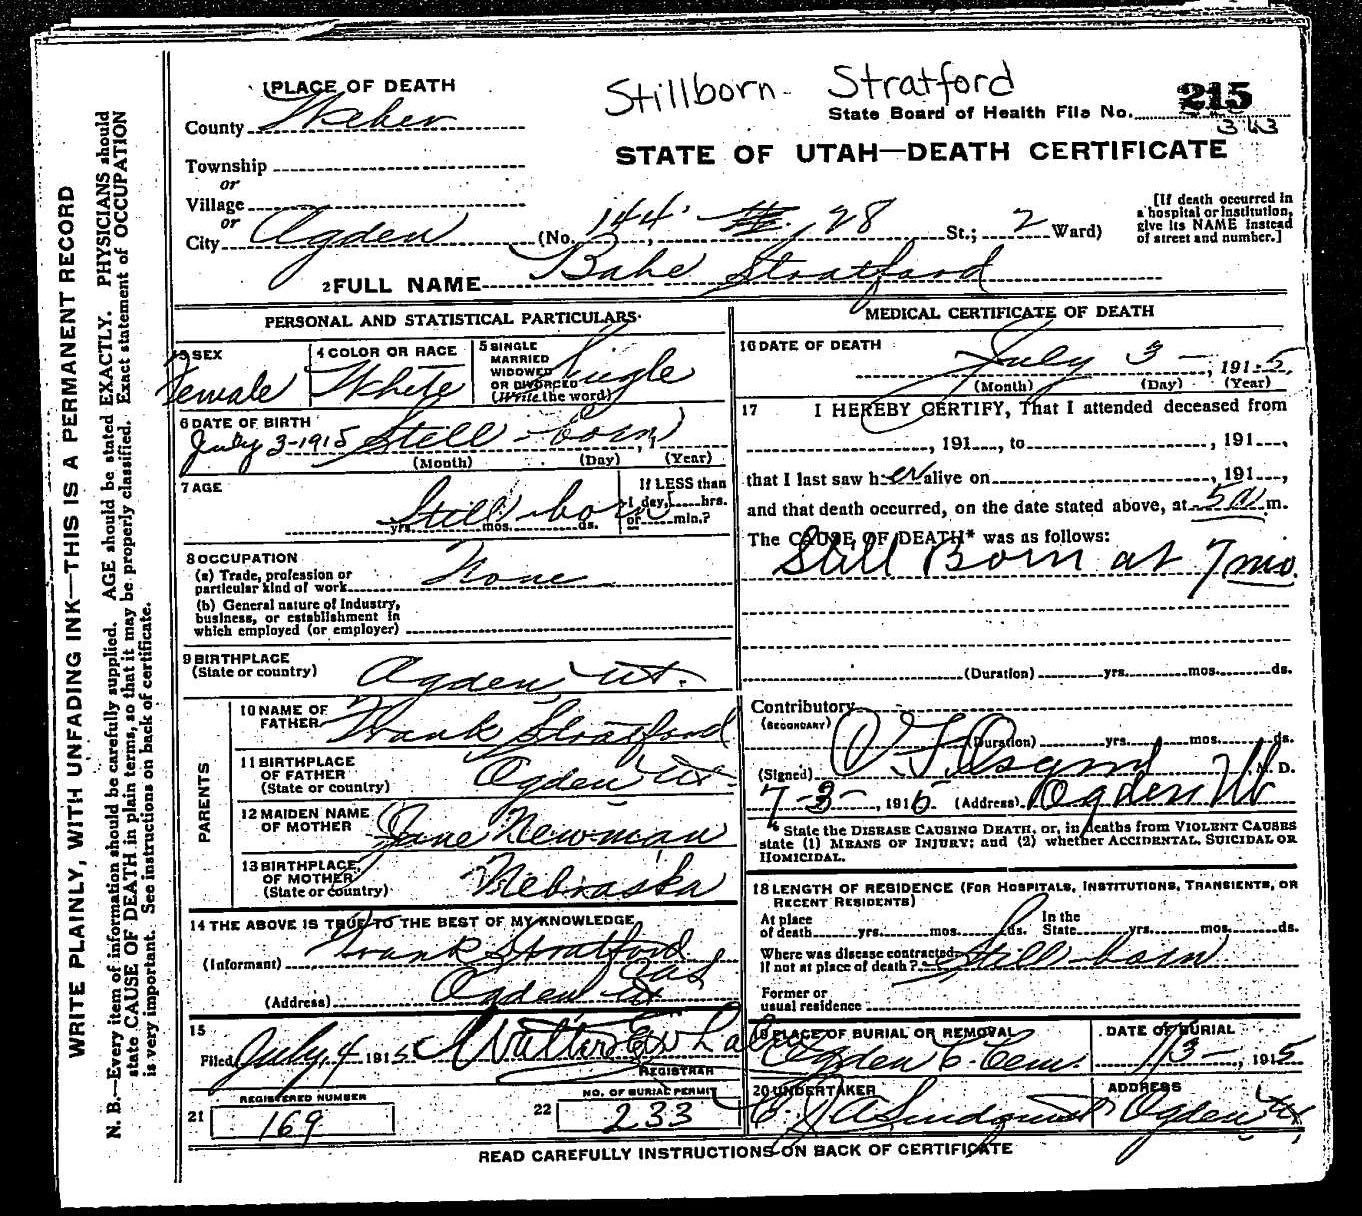 WRITE PLAINLY, WITH UNFADING INK—THIS IS A PERMANENT RECORD
N. B.—Every item of information should be carefully supplied. AGE should be stated EXACTLY. PHYSICIANS should
state CAUSE OF DEATH in plain terms, so that it may be properly classified. Exact statement of OCCUPATION
is very important. See instructions on back of certificate.
1 PLACE OF DEATH
Stillborn Stratford
County Weber
State Board of Health File No. 215
343
STATE OF UTAH—DEATH CERTIFICATE
Township
or
Village
or
City Ogden (No. 144 28 St.; 2 Ward)
[If death occurred in
a hospital or institution,
give its NAME instead
of street and number.]
2 FULL NAME Babe Stratford
PERSONAL AND STATISTICAL PARTICULARS
3 SEX Female
4 COLOR OR RACE White
5 SINGLE
MARRIED
WIDOWED
OR DIVORCED
(Write the word) Single
6 DATE OF BIRTH
July 3-1915 Still-born
(Month) (Day) (Year)
7 AGE If LESS than
Still-born 1 day, hrs.
yrs. mos. ds. or min.?
8 OCCUPATION
(a) Trade, profession or
particular kind of work None
(b) General nature of industry,
business, or establishment in
which employed (or employer)
9 BIRTHPLACE
(State or country) Ogden Ut.
PARENTS
10 NAME OF
FATHER Frank Stratford
11 BIRTHPLACE
OF FATHER
(State or country) Ogden Ut
12 MAIDEN NAME
OF MOTHER Jane Newman
13 BIRTHPLACE
OF MOTHER
(State or country) Nebraska
14 THE ABOVE IS TRUE TO THE BEST OF MY KNOWLEDGE
(Informant) Frank Stratford
(Address) Ogden Ut
15
Filed July 4 1915
REGISTRAR
REGISTERED NUMBER
21 169
NO. OF BURIAL PERMIT
22 233
MEDICAL CERTIFICATE OF DEATH
16 DATE OF DEATH
July 3 - , 1915
(Month) (Day) (Year)
17 I HEREBY CERTIFY, That I attended deceased from
, 191 , to , 191 ,
that I last saw her alive on , 191 ,
and that death occurred, on the date stated above, at 5 a. m.
The CAUSE OF DEATH* was as follows:
Still Born at 7 mo.
(Duration) yrs. mos. ds.
Contributory
(SECONDARY)
(Duration) yrs. mos. ds.
(Signed) M. D.
7-3- , 1915 (Address) Ogden Ut
* State the DISEASE CAUSING DEATH, or, in deaths from VIOLENT CAUSES
state (1) MEANS OF INJURY; and (2) whether ACCIDENTAL, SUICIDAL OR
HOMICIDAL.
18 LENGTH OF RESIDENCE (FOR HOSPITALS, INSTITUTIONS, TRANSIENTS, OR
RECENT RESIDENTS)
At place In the
of death yrs. mos. ds. State yrs. mos. ds.
Where was disease contracted
If not at place of death? Still born
Former or
usual residence
19 PLACE OF BURIAL OR REMOVAL DATE OF BURIAL
Ogden C. Cem. 7/3- , 1915
20 UNDERTAKER ADDRESS
Ogden Ut
READ CAREFULLY INSTRUCTIONS ON BACK OF CERTIFICATE